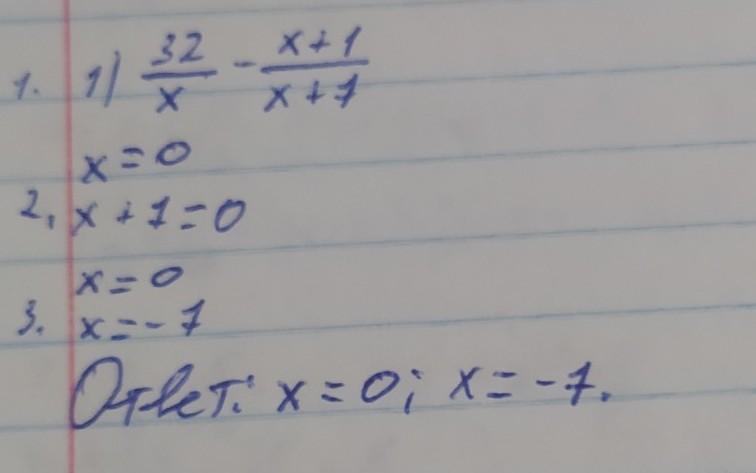 1. 1) 32/x - x+1/x+7
x=0
2. x+7=0
x=0
3. x=-7
Ответ: x=0; x=-7.